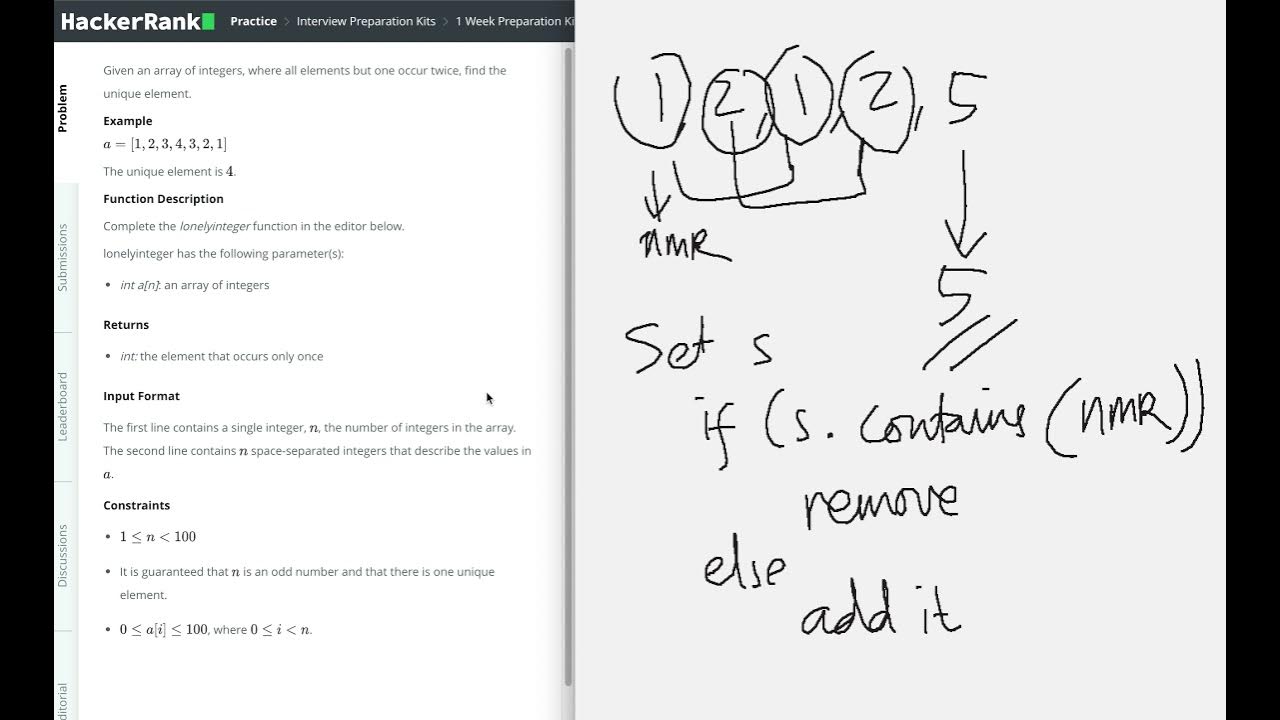 HackerRank Practice > Interview Preparation Kits > 1 Week Preparation Ki
Problem
Submissions
Leaderboard
Discussions
ditorial
Given an array of integers, where all elements but one occur twice, find the
unique element.
Example
a = [1, 2, 3, 4, 3, 2, 1]
The unique element is 4.
Function Description
Complete the lonelyinteger function in the editor below.
lonelyinteger has the following parameter(s):
• int a[n]: an array of integers
Returns
• int: the element that occurs only once
Input Format
The first line contains a single integer, n, the number of integers in the array.
The second line contains n space-separated integers that describe the values in
a.
Constraints
• 1 ≤ n < 100
• It is guaranteed that n is an odd number and that there is one unique
element.
• 0 ≤ a[i] ≤ 100, where 0 ≤ i < n.
1, 2, 1, 2, 5
nmR
5
Set s
if (s. contains (nmR))
remove
else
add it